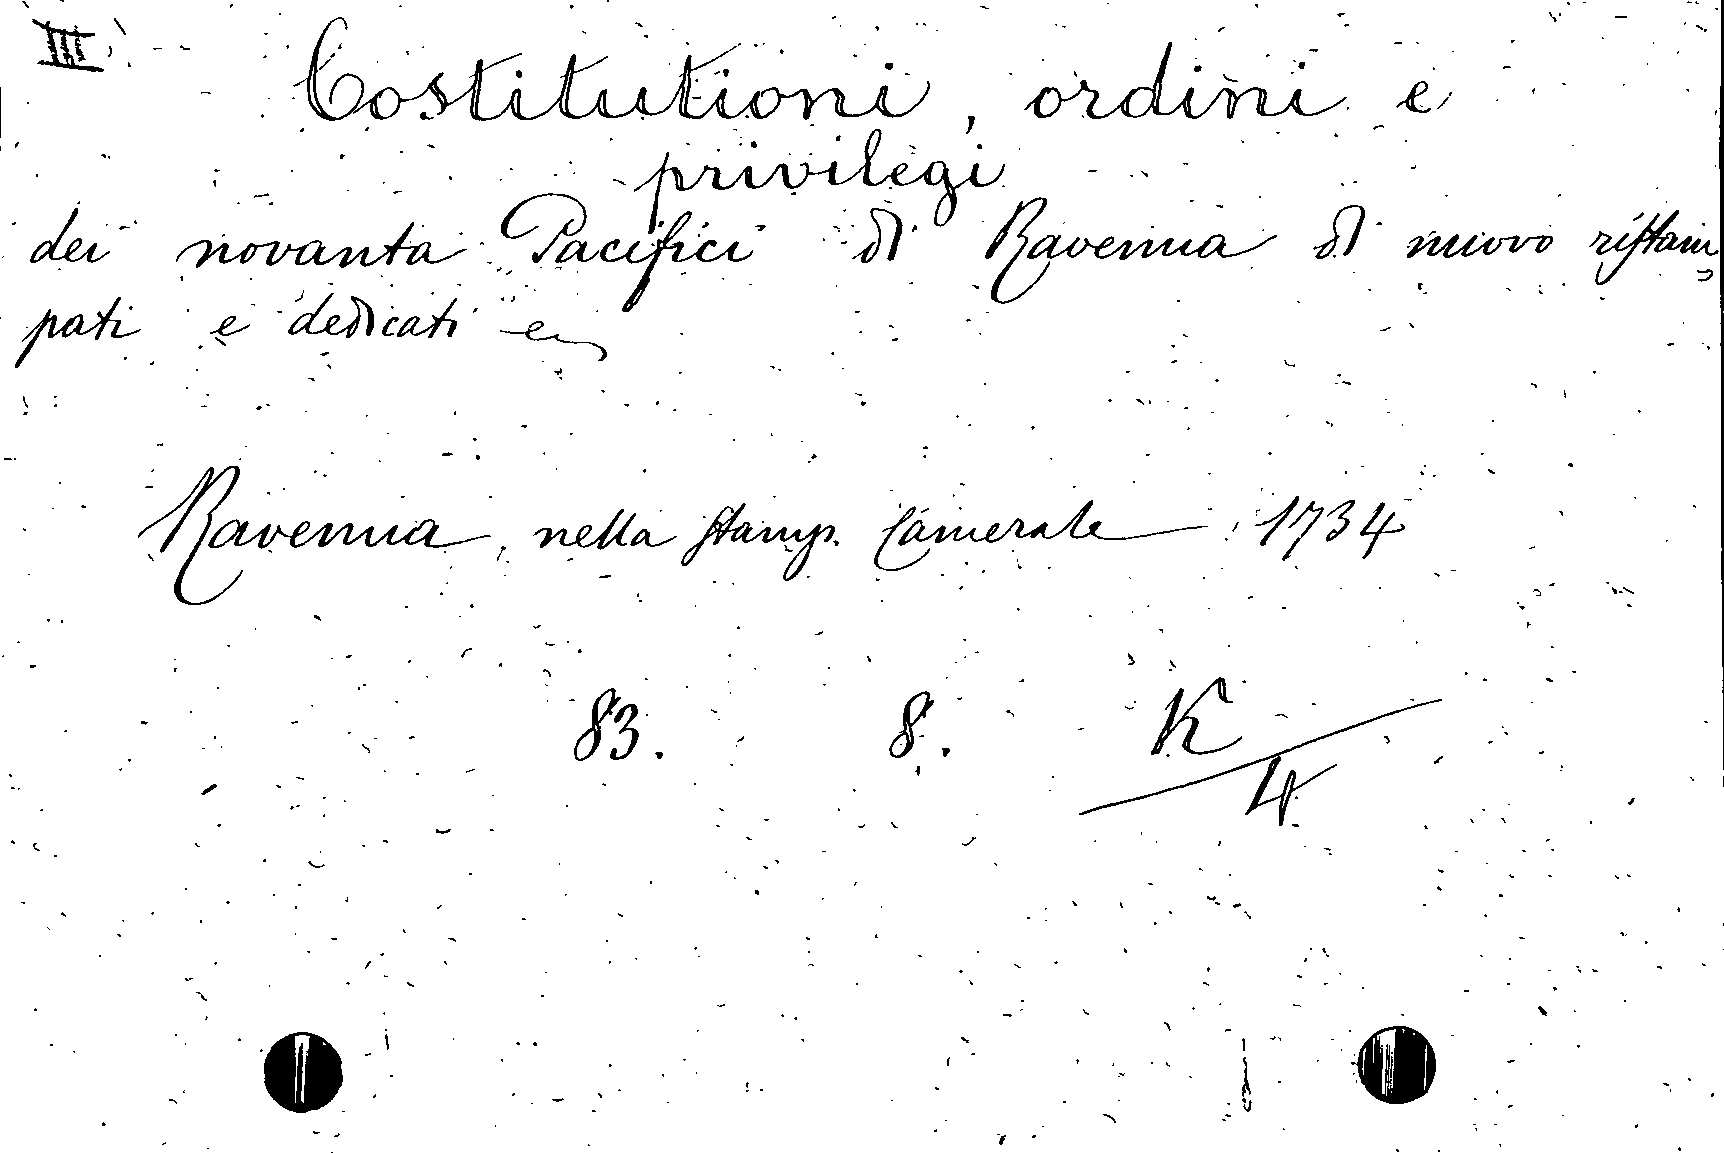 III
Costitutioni, ordini e
privilegi
dei novanta Pacifici di Ravenna di nuovo ristam
pati e dedicati e
Ravenna, nella stamp. Camerale 1734
83. 8. K/4